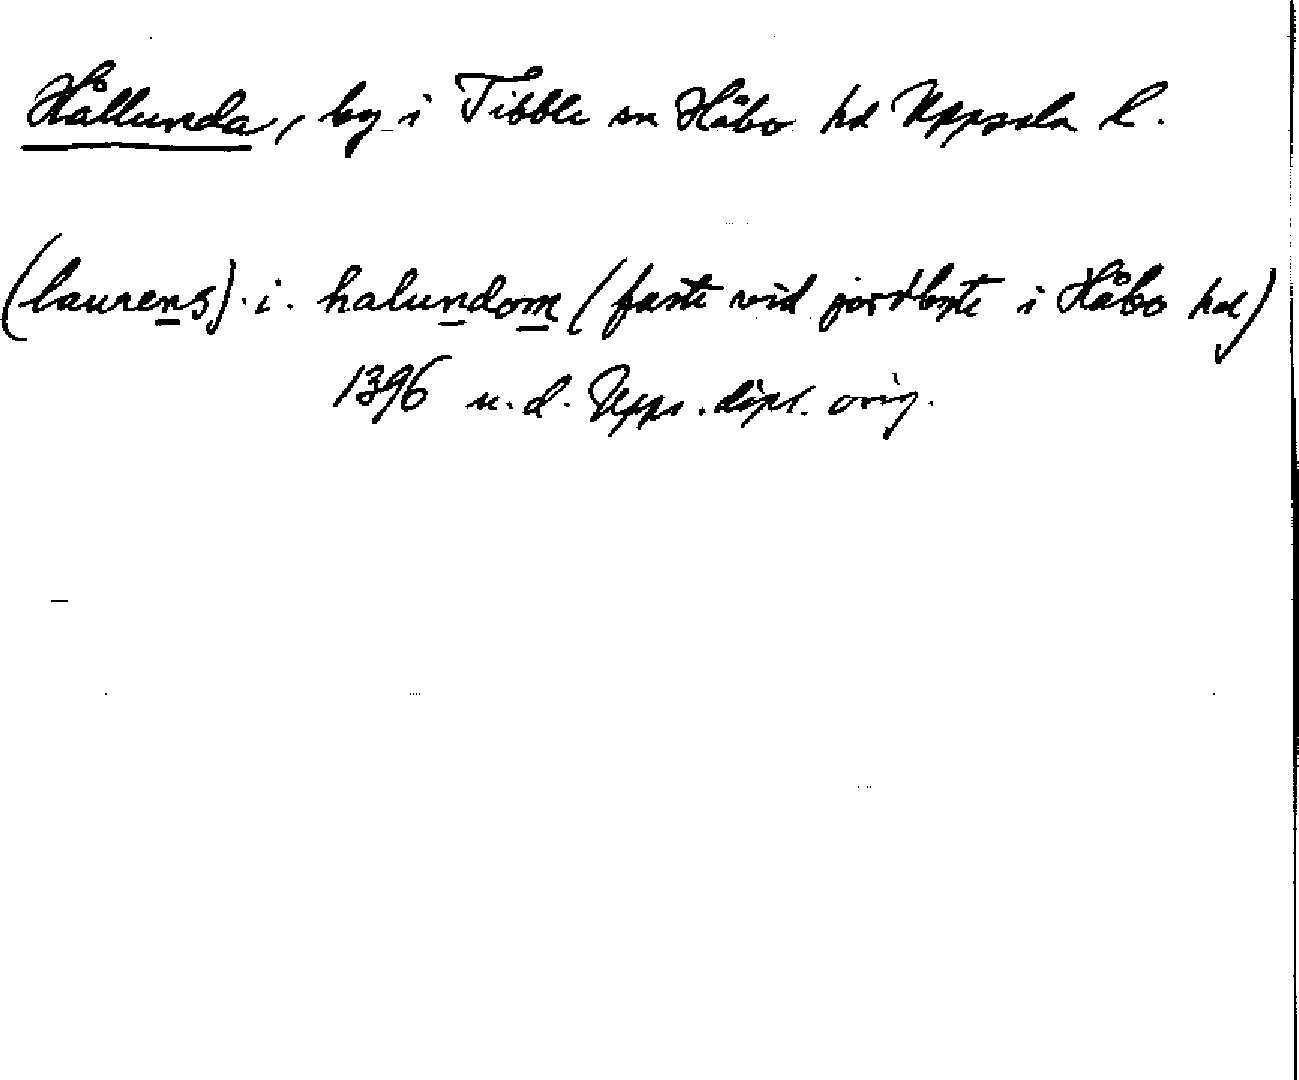 Hållunda, by i Tibble sn Håbo hd Uppsala l.
(laurens) i. halundom (faste vid jordbyte i Håbo hd)
1396 u.d. Upps. dipl. orig.